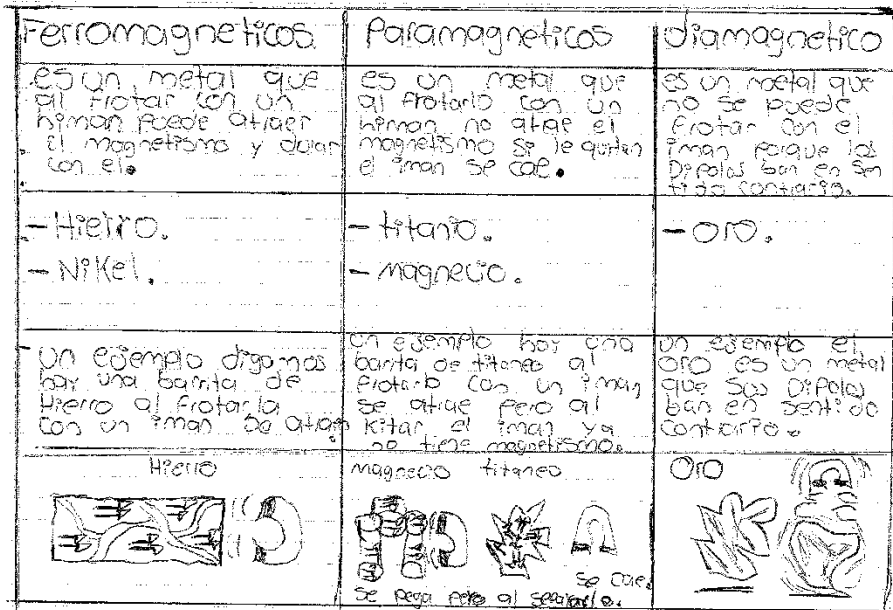 Ferromagneticos
Paramagneticos
diamagnetico
es un metal que
al frotar con un
himan puede atraer
el magnetismo y durar
con el.
es un metal que
al frotarlo con un
himan no atrae el
magnetismo si le quitan
el iman se cae.
es un metal que
no se puede
frotar con el
iman porque los
Dipolos ban en sen
tido contrario.
- Hierro.
- Nikel.
- titanio.
- magnecio.
- oro.
un ejemplo digamos
hay una barrita de
Hierro al frotarla
con un iman se atrae
un ejemplo hay una
barrita de titaneo al
frotarlo con un iman
se atrae pero al
kitar el iman ya
no tiene magnetismo.
un ejemplo el
oro es un metal
que sus Dipolos
ban en sentido
contrario.
Hierro
magnecio titaneo
se cae.
se pega pero al separarlo.
Oro